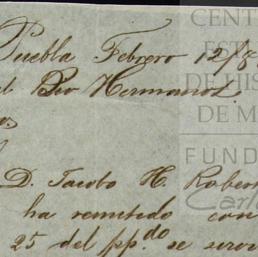 Puebla Febrero 12/8
Rio Hermanos.
D. Jacobo H. Robert
ha remitido con
25 del pp.do se serv
CENT
EST
DE HIS
DE M
FUND
Car